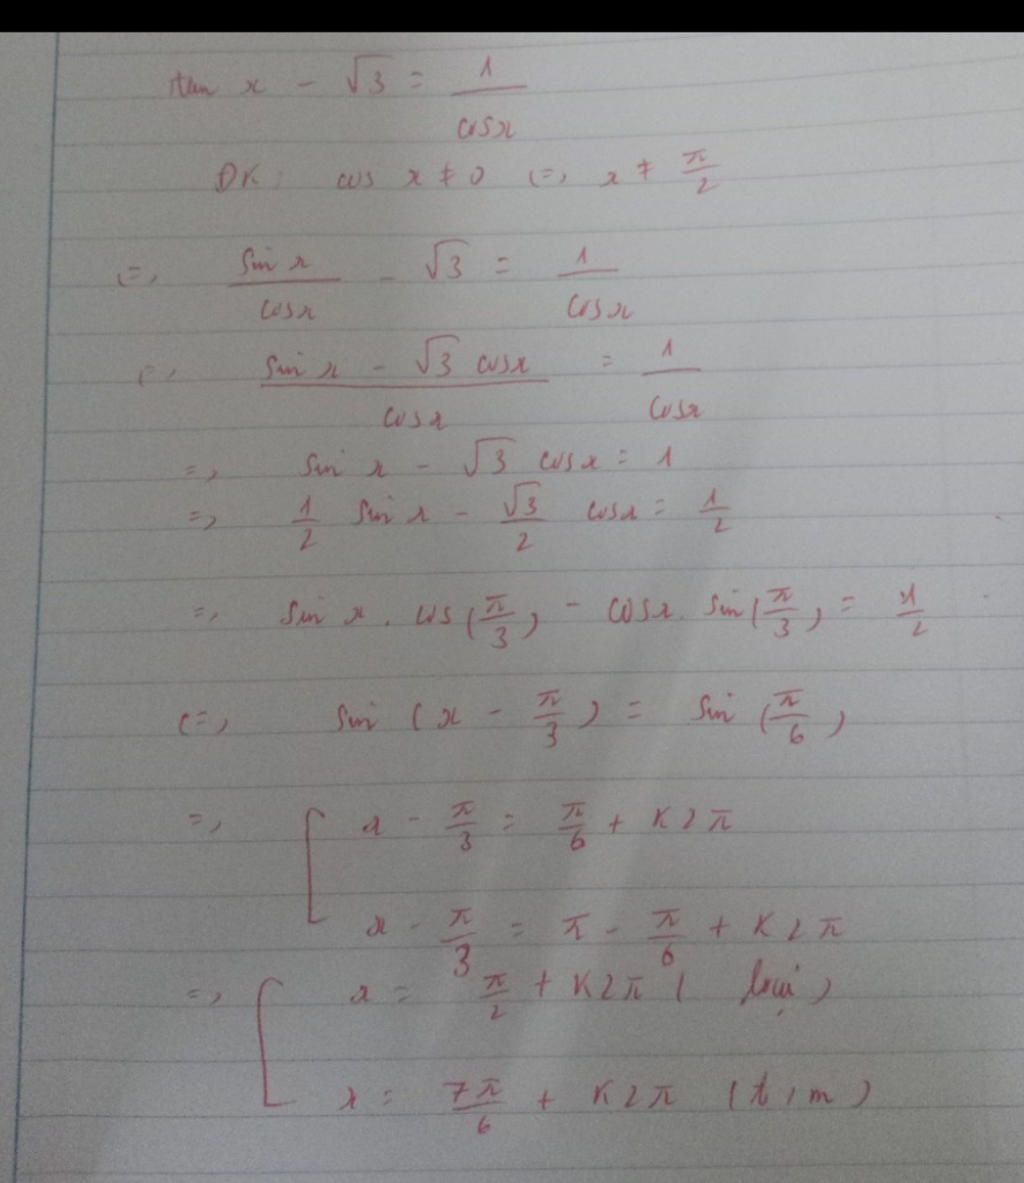 tan x - √3 = 1/cosx
ĐK: cos x ≠ 0 (=) x ≠ π/2
(=) sin x/cosx - √3 = 1/cosx
(=) (sin x - √3 cosx)/cosx = 1/cosx
=) sin x - √3 cosx = 1
=) 1/2 sin x - √3/2 cosx = 1/2
=) sin x . cos(π/3) - cosx . sin(π/3) = 1/2
(=) sin (x - π/3) = sin (π/6)
=) [ x - π/3 = π/6 + K2π
x - π/3 = π - π/6 + K2π
=) [ x = π/2 + K2π ( loại )
x = 7π/6 + K2π (t/m)